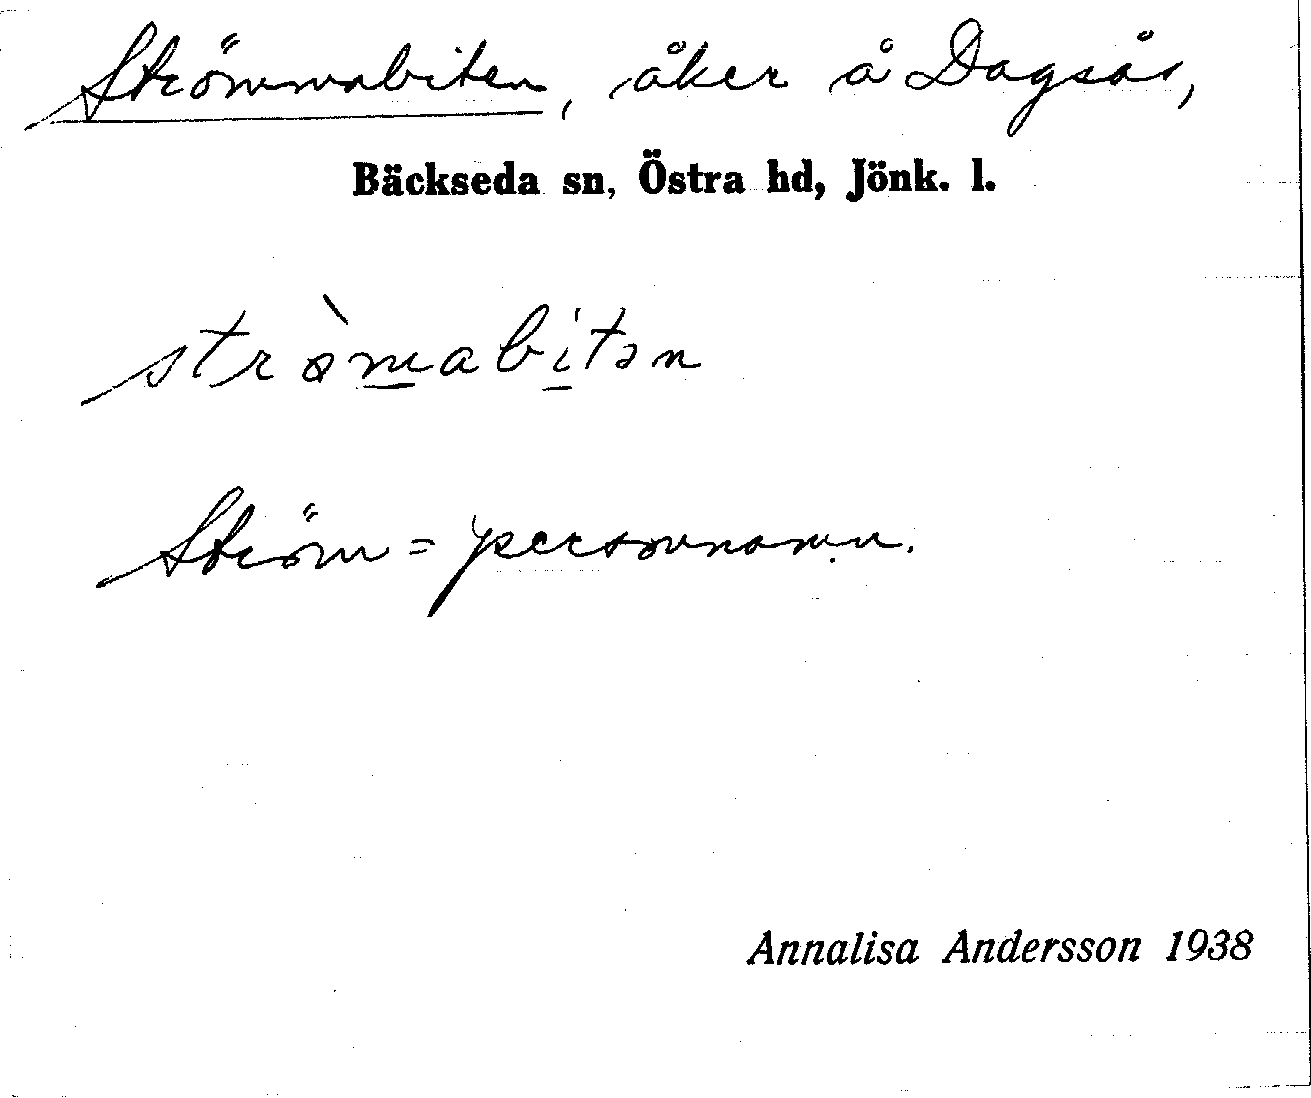 Strömmabiten, åker å Dagsås,
Bäckseda sn, Östra hd, Jönk. l.
strø̀mabitən
Ström = personnamn.
Annalisa Andersson 1938